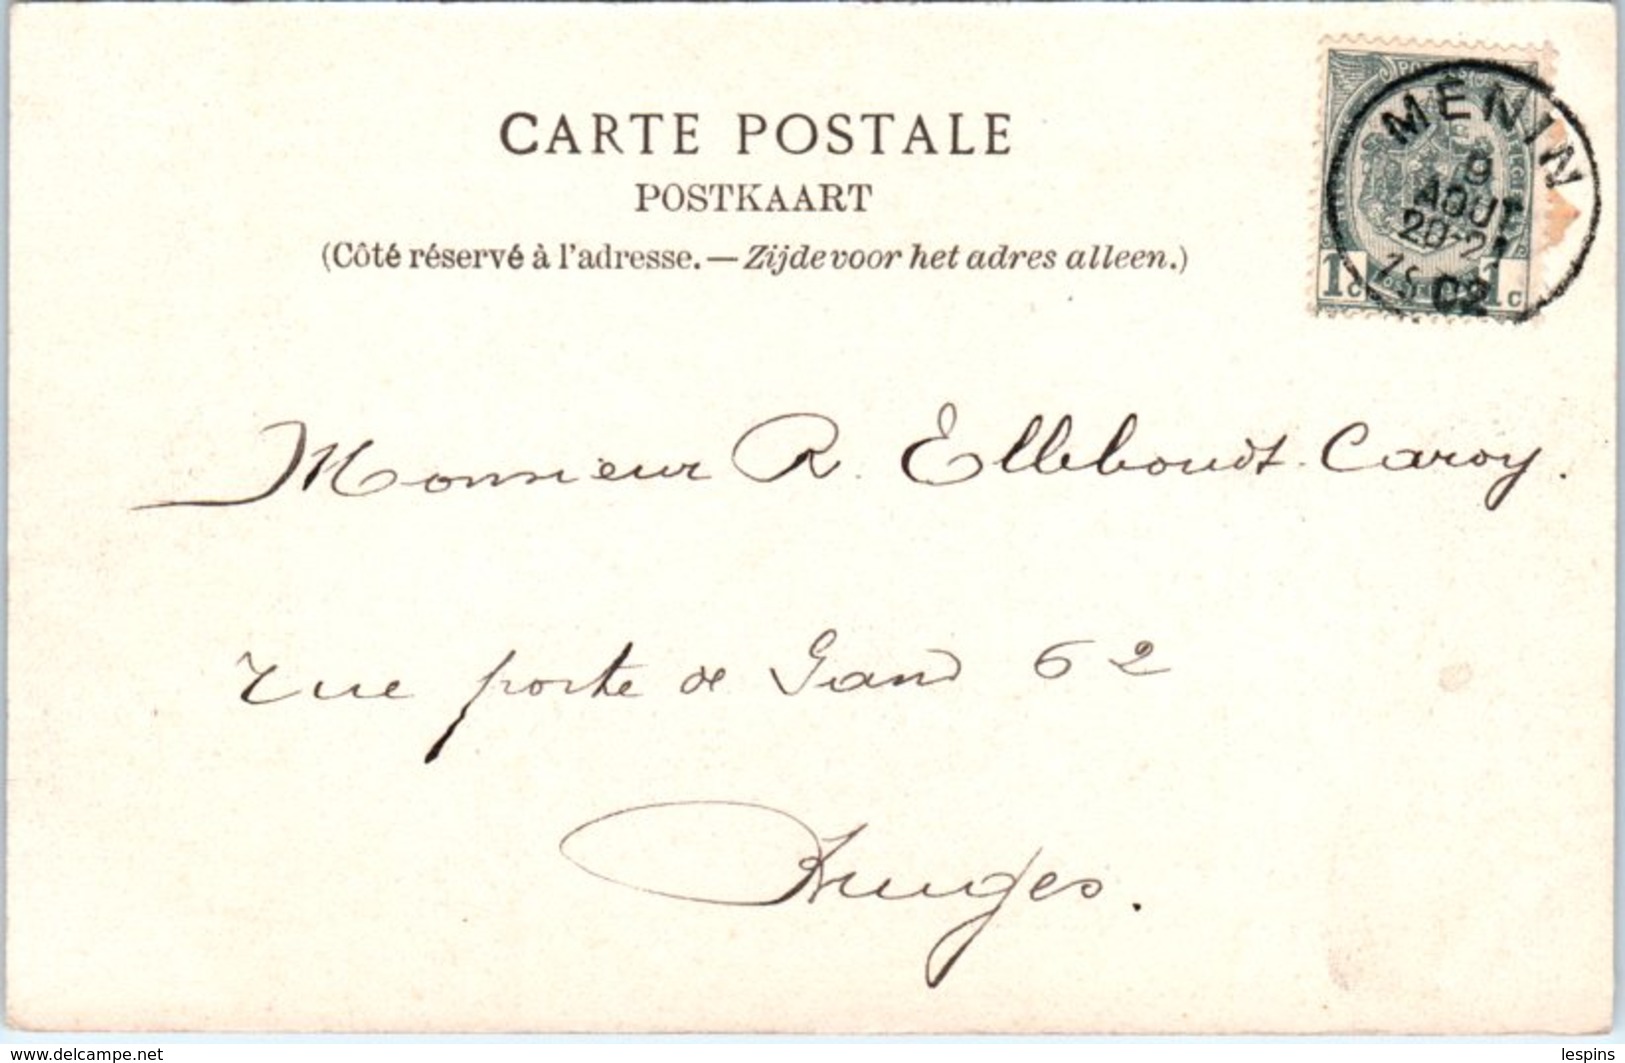 CARTE POSTALE
POSTKAART
(Côté réservé à l'adresse. — Zijde voor het adres alleen.)
MENIN
9
AOUT
20-2
1902
1c 1c
Monsieur R. Elleboudt-Caroy.
rue porte de Gand 62
Bruges.
www.delcampe.net
lespins